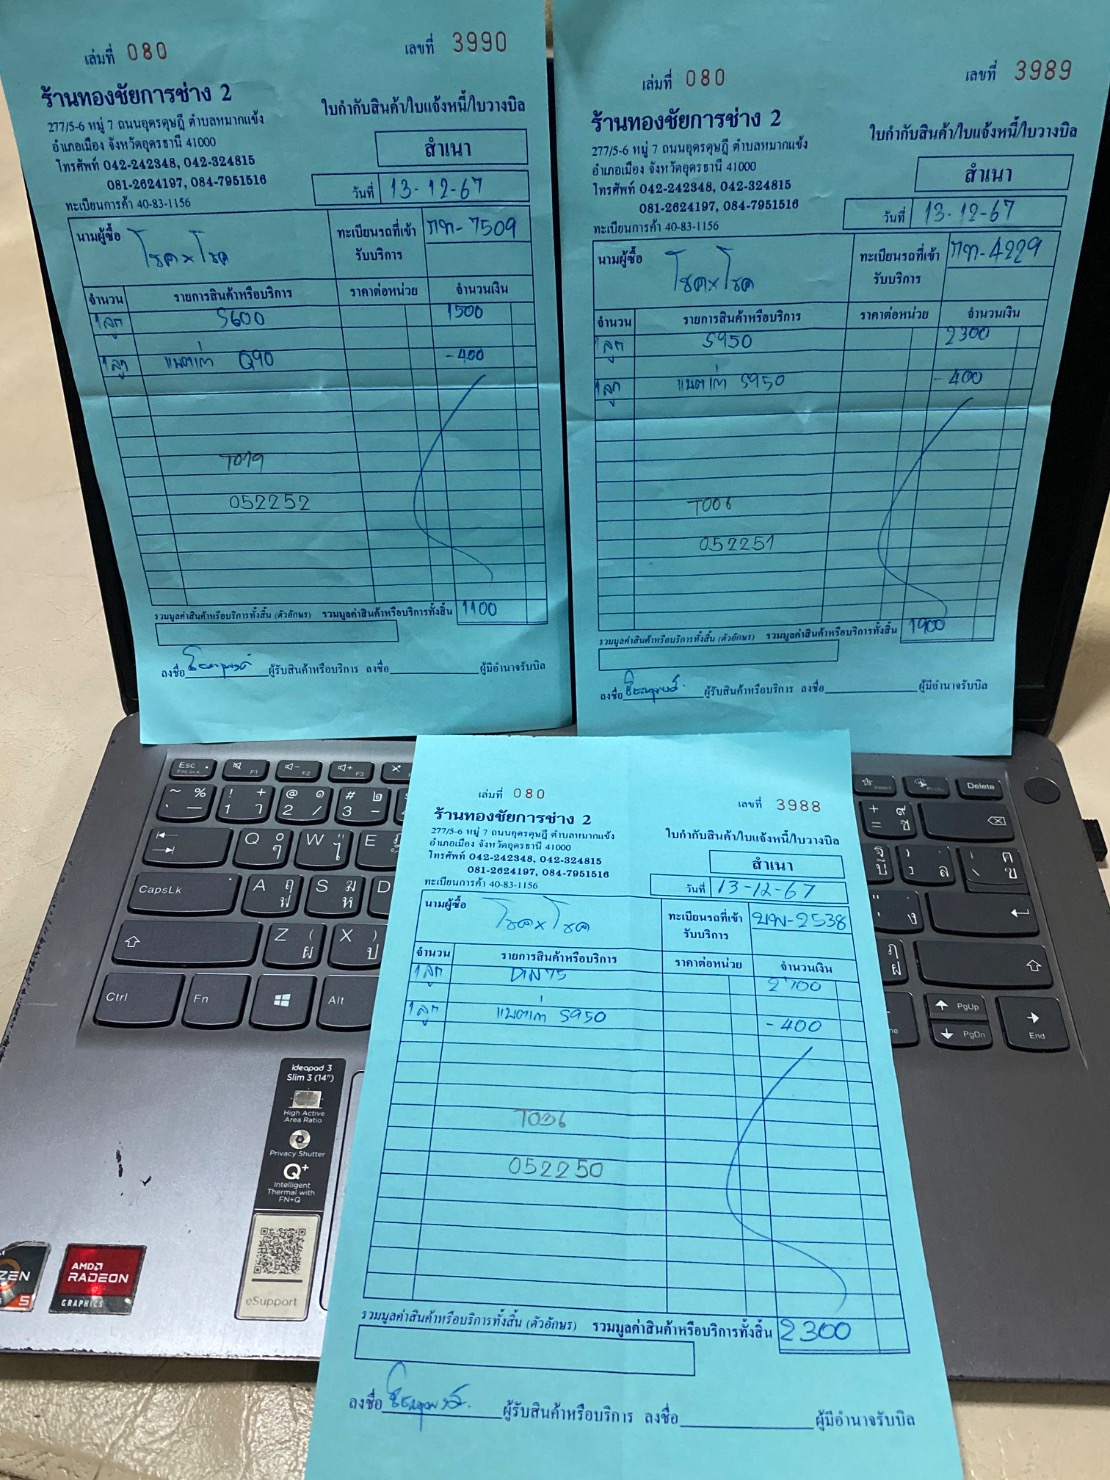 เล่มที่ 080
เลขที่ 3990
ร้านทองชัยการช่าง 2
277/5-6 หมู่ 7 ถนนอุดรดุษฎี ตำบลหมากแข้ง
อำเภอเมือง จังหวัดอุดรธานี 41000
โทรศัพท์ 042-242348, 042-324815
081-2624197, 084-7951516
ทะเบียนการค้า 40-83-1156
ใบกำกับสินค้า/ใบแจ้งหนี้/ใบวางบิล
สำเนา
วันที่ 13-12-67
นามผู้ซื้อ โชค×โชค
ทะเบียนรถที่เข้ารับบริการ กท-7509
จำนวน รายการสินค้าหรือบริการ ราคาต่อหน่วย จำนวนเงิน
1ลูก S600 1500
1ลูก แบตเก่า Q90 -400
T079
052252
รวมมูลค่าสินค้าหรือบริการทั้งสิ้น (ตัวอักษร) รวมมูลค่าสินค้าหรือบริการทั้งสิ้น 1100
ลงชื่อ ผู้รับสินค้าหรือบริการ ลงชื่อ ผู้มีอำนาจรับบิล
เล่มที่ 080
เลขที่ 3989
ร้านทองชัยการช่าง 2
277/5-6 หมู่ 7 ถนนอุดรดุษฎี ตำบลหมากแข้ง
อำเภอเมือง จังหวัดอุดรธานี 41000
โทรศัพท์ 042-242348, 042-324815
081-2624197, 084-7951516
ทะเบียนการค้า 40-83-1156
ใบกำกับสินค้า/ใบแจ้งหนี้/ใบวางบิล
สำเนา
วันที่ 13-12-67
นามผู้ซื้อ โชค×โชค
ทะเบียนรถที่เข้ารับบริการ กท-4229
จำนวน รายการสินค้าหรือบริการ ราคาต่อหน่วย จำนวนเงิน
1ลูก S950 2300
1ลูก แบตเก่า S950 -400
T006
052251
รวมมูลค่าสินค้าหรือบริการทั้งสิ้น (ตัวอักษร) รวมมูลค่าสินค้าหรือบริการทั้งสิ้น 1900
ลงชื่อ ผู้รับสินค้าหรือบริการ ลงชื่อ ผู้มีอำนาจรับบิล
เล่มที่ 080
เลขที่ 3988
ร้านทองชัยการช่าง 2
277/5-6 หมู่ 7 ถนนอุดรดุษฎี ตำบลหมากแข้ง
อำเภอเมือง จังหวัดอุดรธานี 41000
โทรศัพท์ 042-242348, 042-324815
081-2624197, 084-7951516
ทะเบียนการค้า 40-83-1156
ใบกำกับสินค้า/ใบแจ้งหนี้/ใบวางบิล
สำเนา
วันที่ 13-12-67
นามผู้ซื้อ โชค×โชค
ทะเบียนรถที่เข้ารับบริการ บพ-2538
จำนวน รายการสินค้าหรือบริการ ราคาต่อหน่วย จำนวนเงิน
1ลูก 2700
1ลูก แบตเก่า S950 -400
T036
052250
รวมมูลค่าสินค้าหรือบริการทั้งสิ้น (ตัวอักษร) รวมมูลค่าสินค้าหรือบริการทั้งสิ้น 2300
ลงชื่อ ผู้รับสินค้าหรือบริการ ลงชื่อ ผู้มีอำนาจรับบิล
Esc F1 F2 F3
Delete
Q W E
CapsLk A S D
Z X
Ctrl Fn Alt
PgUp
PgDn End
ideapad 3
Slim 3 (14")
High Active
Area Ratio
Privacy Shutter
Q+
Intelligent
Thermal with
FN+Q
eSupport
ZEN
5
AMD
RADEON
GRAPHICS